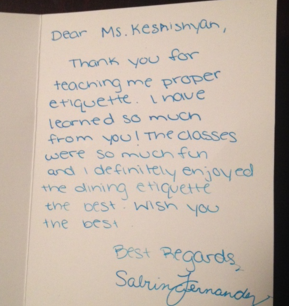 Dear Ms. Keshishyan,
Thank you for
teaching me proper
etiquette. I have
learned so much
from you! The classes
were so much fun
and I definitely enjoyed
the dining etiquette
the best. Wish you
the best.
Best Regards,
Sabrina Fernandez